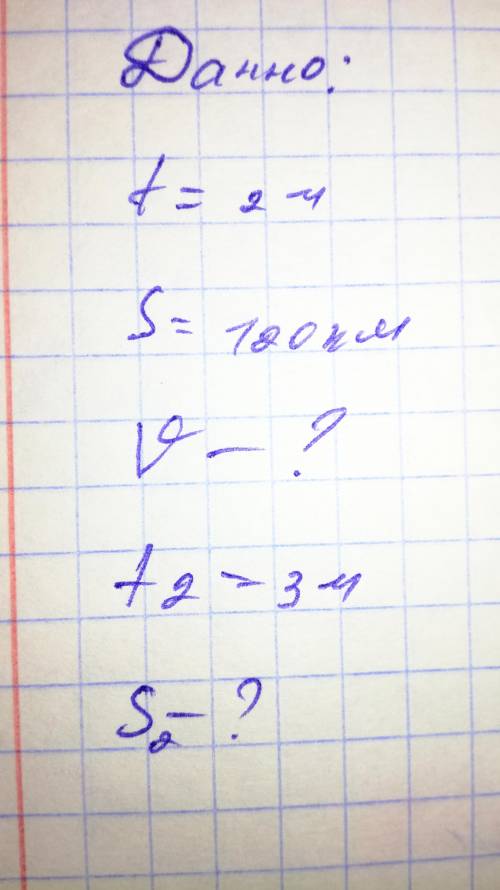 Данно:
t = 2 ч
S = 120 км
V - ?
t2 = 3 ч
S2 - ?